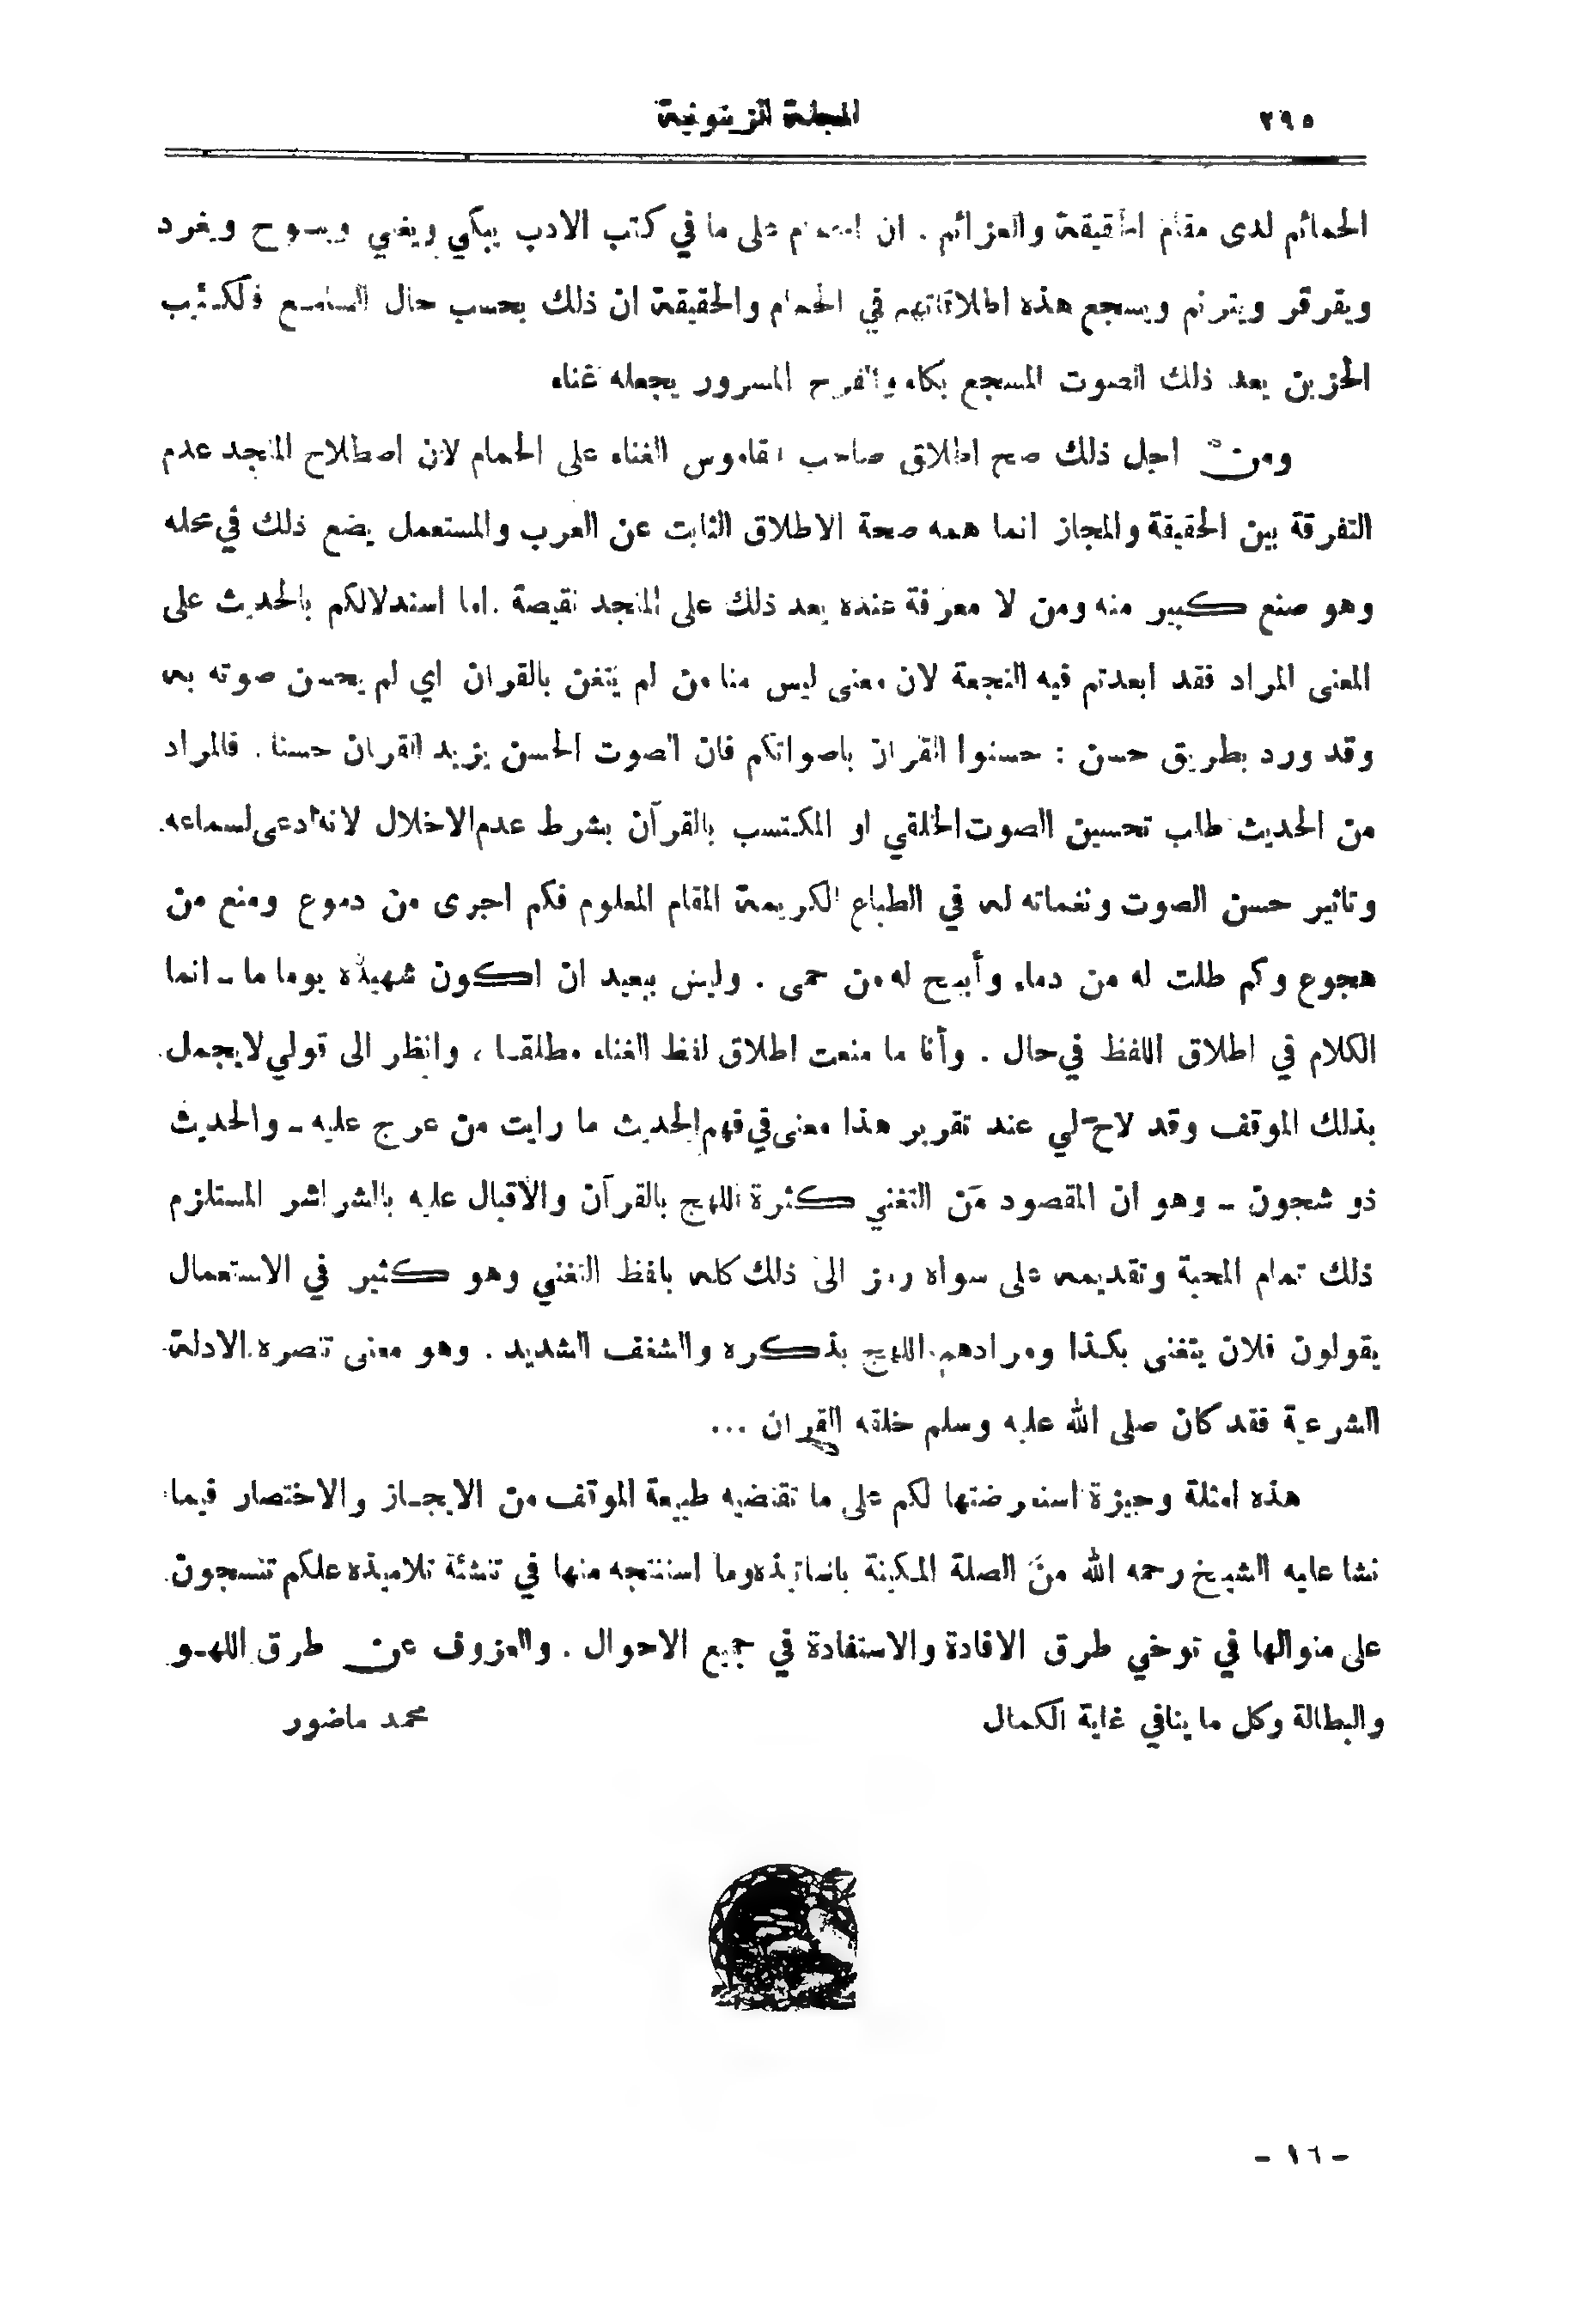 ٢٩٥
المجلة الزيتونية
الحمائم لدى مقام الحقيقة والعزائم . ان الحمام على ما في كتب الادب يبكي ويغني وينوح ويغرد
ويقرقر ويترنم ويسجع هذه اطلاقاتهم في الحمام والحقيقة ان ذلك بحسب حال السامع فلكئيب
الحزين يعد ذلك الصوت المسجع بكاء والفرح المسرور يجعله غناء
ومن اجل ذلك صح اطلاق صاحب القاموس الغناء على الحمام لان اصطلاح المنجد عدم
التفرقة بين الحقيقة والمجاز انما همه صحة الاطلاق الثابت عن العرب والمستعمل يضع ذلك في محله
وهو صنع كبير منه ومن لا معرفة عنده يعد ذلك على المنجد نقيصة . اما استدلالكم بالحديث على
المعنى المراد فقد ابعدتم فيه النجعة لان معنى ليس منا من لم يتغن بالقران اي لم يحسن صوته به
وقد ورد بطريق حسن : حسنوا القران باصواتكم فان الصوت الحسن يزيد القران حسنا . فالمراد
من الحديث طلب تحسين الصوت الخلقي او المكتسب بالقرآن بشرط عدم الاخلال لانه ادعى لسماعه
وتاثير حسن الصوت ونغماته له في الطباع الكريمة المقام المعلوم فكم اجرى من دموع ومنع من
هجوع وكم طلت له من دماء وأبيح له من حمى . وليس ببعيد ان اكون شهيده يوما ما ـ انما
الكلام في اطلاق اللفظ في حال . وأنا ما منعت اطلاق لفظ الغناء مطلقا ، وانظر الى قولي لا يجمل
بذلك الموقف وقد لاح لي عند تقرير هذا معنى في فهم الحديث ما رايت من عرج عليه ـ والحديث
ذو شجون ـ وهو ان المقصود من التغني كثرة اللهج بالقرآن والاقبال عليه بالشراشر المستلزم
ذلك تمام المحبة وتقديمه على سواه رمز الى ذلك كله بلفظ التغني وهو كثير في الاستعمال
يقولون فلان يتغنى بكذا ومرادهم اللهج بذكره والشغف الشديد . وهو معنى تنصره الادلة
الشرعية فقد كان صلى الله عليه وسلم خلقه القران ...
هذه امثلة وجيزة استعرضتها لكم على ما تقتضيه طبيعة الموقف من الايجاز والاختصار فيما
نشا عليه الشيخ رحمه الله من الصلة المكينة باساتيذه وما استنتجه منها في تنشئة تلاميذه علكم تنسجون
على منوالها في توخي طرق الافادة والاستفادة في جميع الاحوال . والعزوف عن طرق اللهو
والبطالة وكل ما ينافي غاية الكمال
محمد ماضور
ـ ١٦ ـ